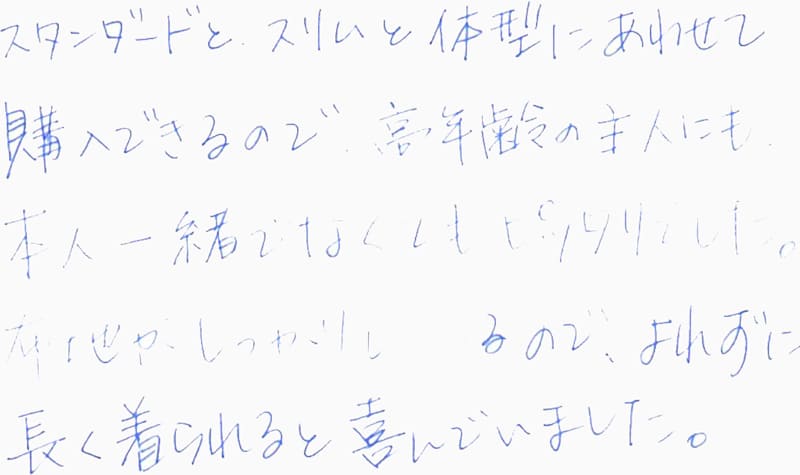 スタンダードと、スリムと体型にあわせて
購入できるので、高年齢の主人にも、
本人一緒でなくともピッタリでした。
布地がしっかりし るので、よれずに
長く着られると喜んでいました。